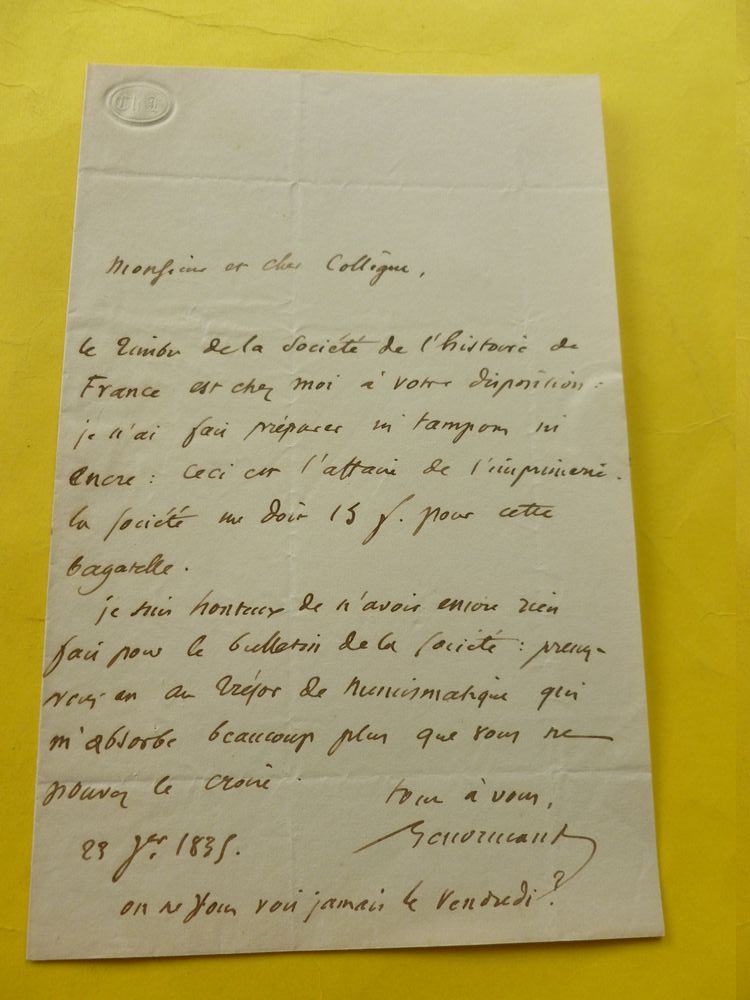 Ch L
Monsieur et cher Collègue,
le timbre de la Société de l'histoire de
France est chez moi à votre disposition :
je n'ai fait préparer ni tampon ni
encre : ceci est l'affaire de l'imprimerie.
la société me doit 15 f. pour cette
bagatelle.
je suis honteux de n'avoir encore rien
fait pour le bulletin de la société : prenez-
vous en au Trésor de numismatique qui
m'absorbe beaucoup plus que vous ne
pouvez le croire.
tout à vous,
Lenormant
23 Jer 1835.
on ne vous voit jamais le vendredi ?